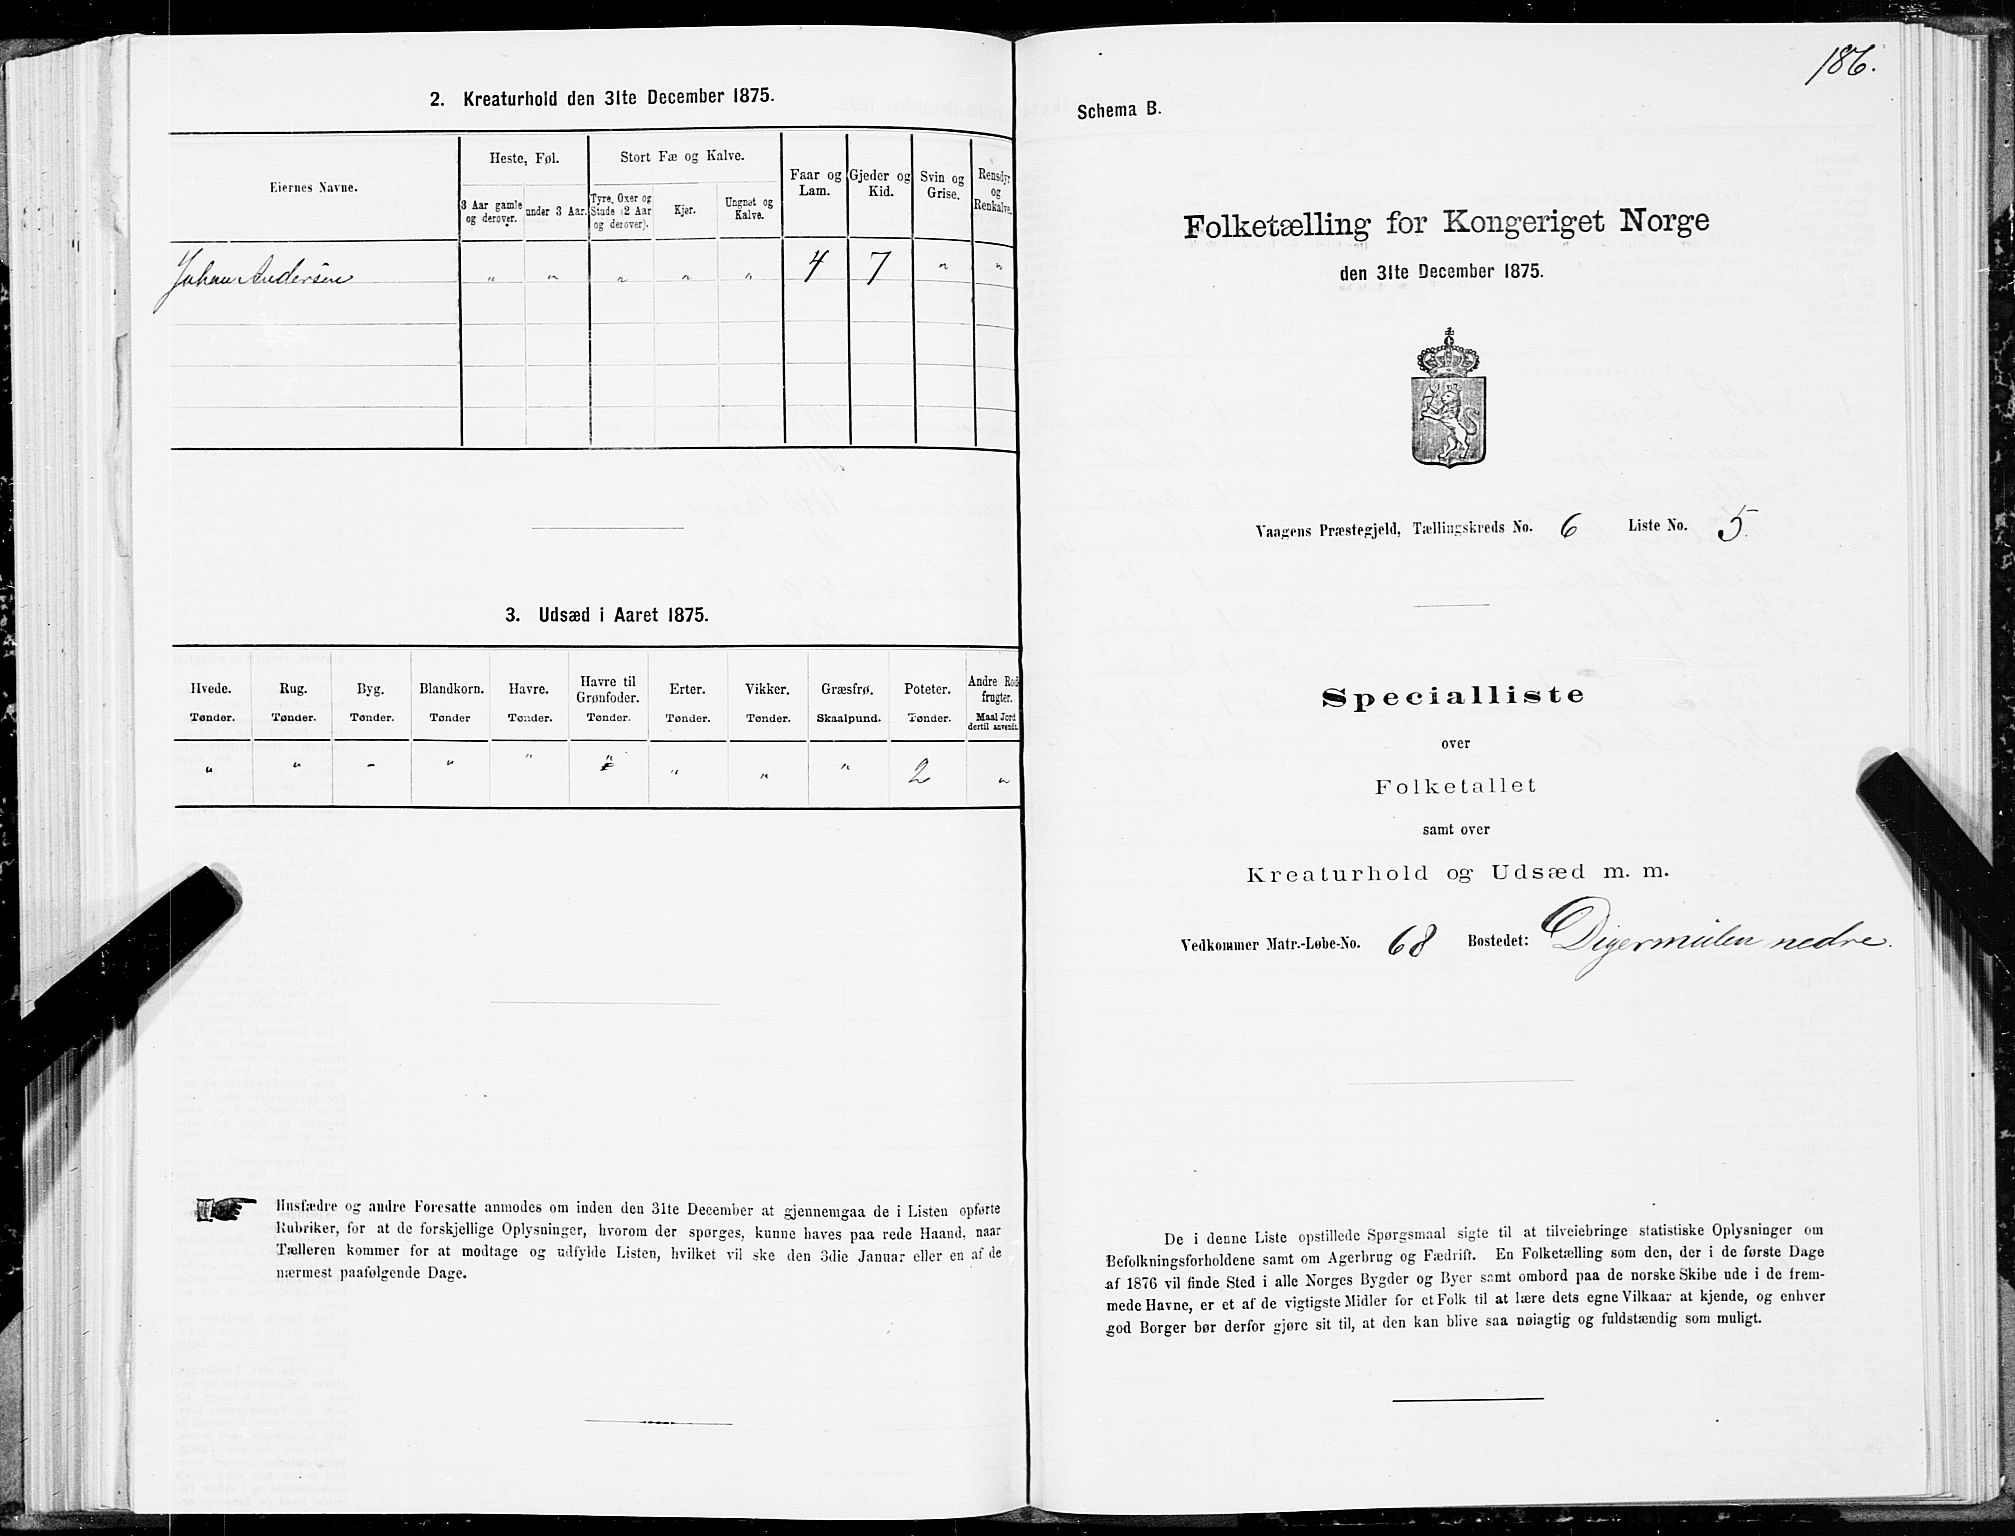 2. Kreaturhold den 31te December 1875.
Eiernes Navne.
Heste, Føl.
Stort Fæ og Kalve.
Faar og Lam.
Gjeder og Kid.
Svin og Grise.
Rensdyr og Renkalve.
3 Aar gamle og derover.
under 3 Aar.
Tyre, Oxer og Stude (2 Aar og derover).
Kjør.
Ungnøt og Kalve.
Johan Andersen " " " " " 4 7 " "
3. Udsæd i Aaret 1875.
Hvede. Rug. Byg. Blandkorn. Havre. Havre til Grønfoder. Erter. Vikker. Græsfrø. Poteter. Andre Rodfrugter.
Tønder. Tønder. Tønder. Tønder Tønder. Tønder. Tønder. Tønder. Skaalpund. Tønder. Maal Jord dertil anvendt.
" " - " " " " " " 2 "
Husfædre og andre Foresatte anmodes om inden den 31te December at gjennemgaa de i Listen opførte
Rubriker, for at de forskjellige Oplysninger, hvorom der spørges, kunne haves paa rede Haand, naar
Tælleren kommer for at modtage og udfylde Listen, hvilket vil ske den 3die Januar eller en af de
nærmest paafølgende Dage.
186.
Schema B.
Folketælling for Kongeriget Norge
den 31te December 1875.
Vaagens Præstegjeld, Tællingskreds No. 6 Liste No. 5.
Specialliste
over
Folketallet
samt over
Kreaturhold og Udsæd m. m.
Vedkommer Matr.-Løbe-No. 68 Bostedet: Digermulen nedre.
De i denne Liste opstillede Spørgsmaal sigte til at tilveiebringe statistiske Oplysninger om
Befolkningsforholdene samt om Agerbrug og Fædrift. En Folketælling som den, der i de første Dage
af 1876 vil finde Sted i alle Norges Bygder og Byer samt ombord paa de norske Skibe ude i de frem-
mede Havne, er et af de vigtigste Midler for et Folk til at lære dets egne Vilkaar at kjende, og enhver
god Borger bør derfor gjøre sit til, at den kan blive saa nøiagtig og fuldstændig som muligt.